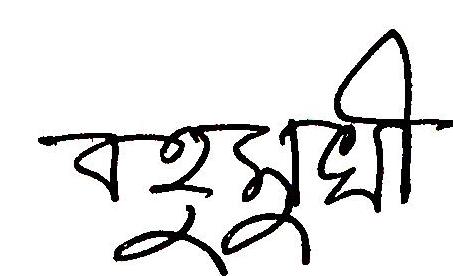 বহুমুখী